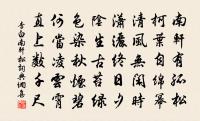 南軒有孤松
柯葉自綿冪
清風無閑時
瀟灑終日夕
陰生古苔綠
色染秋煙碧
何當凌雲霄
直上數千尺
李白南軒松詞典網書